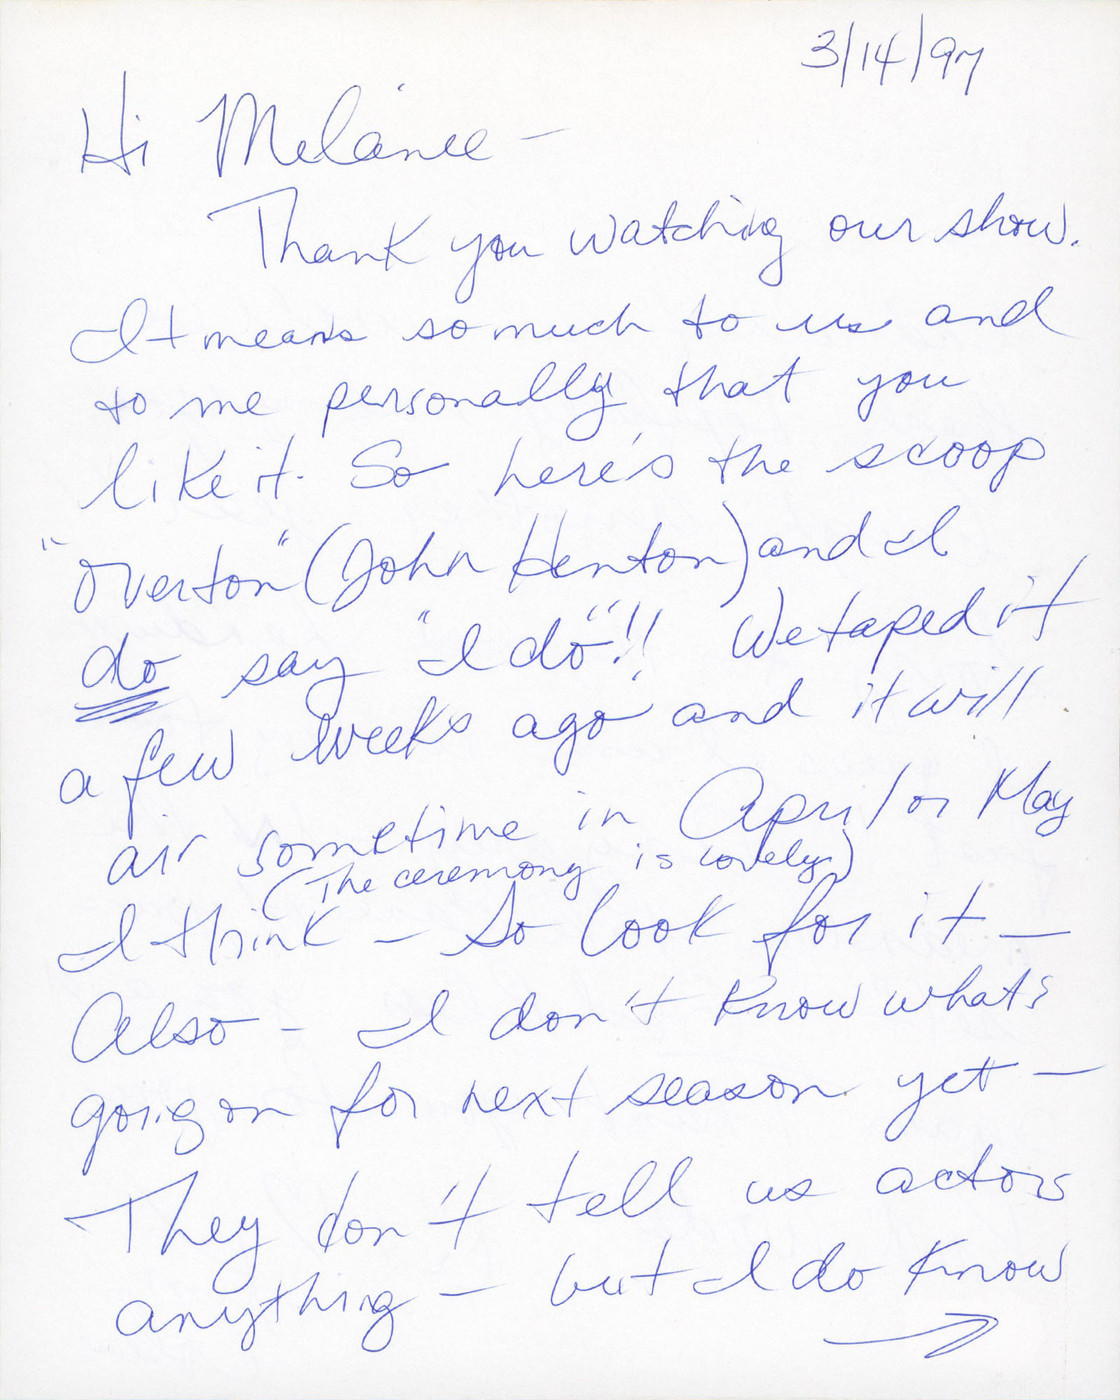 3/14/97
Hi Melanee -
Thank you watching our show.
It means so much to us and
to me personally that you
like it. So here's the scoop
"Overton" (John Henton) and I
do say "I do"!! We taped it
a few weeks ago and it will
air sometime in April or May
(The ceremony is lovely)
I think - So look for it -
Also - I don't know what's
going on for next season yet -
They don't tell us actors
anything - but I do know